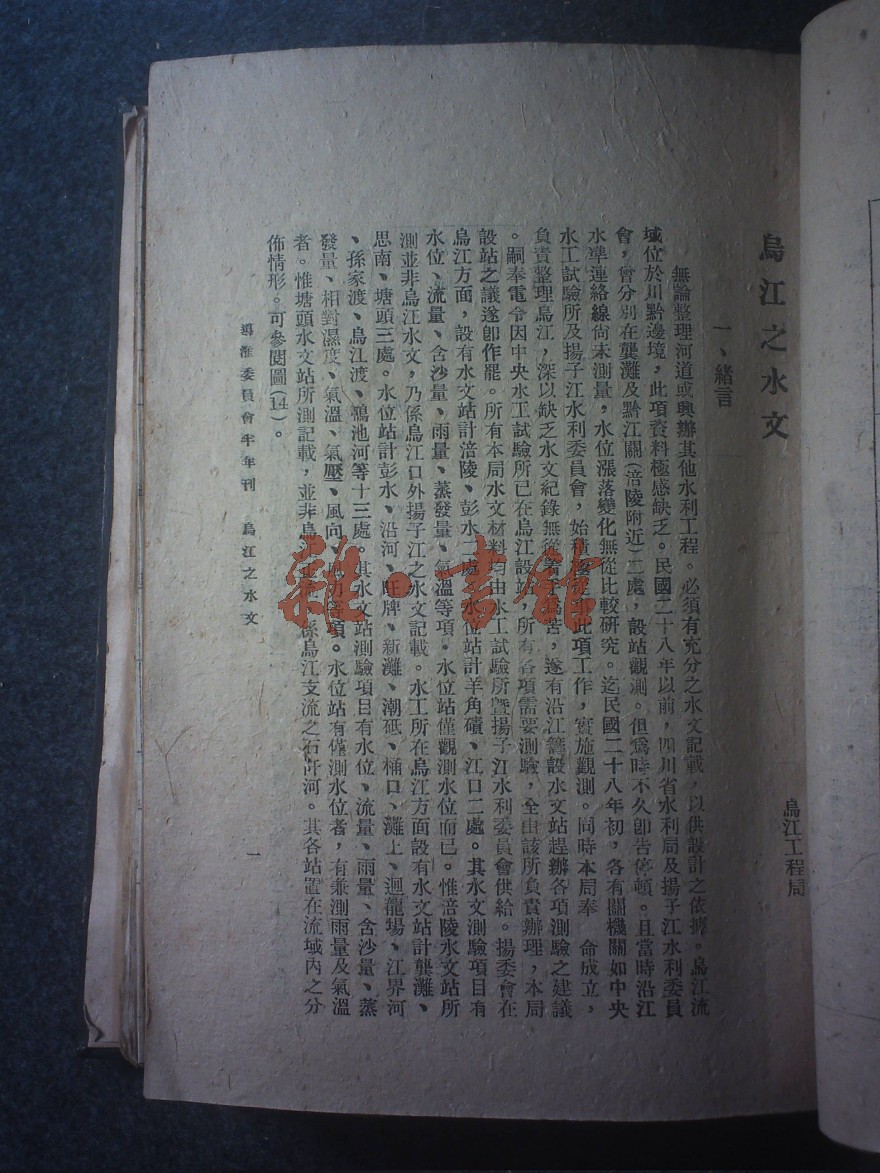 烏江之水文
烏江工程局
一、緒言
無論整理河道或興辦其他水利工程。必須有充分之水文記載，以供設計之依據。烏江流
域位於川黔邊境，此項資料極感缺乏。民國二十八年以前，四川省水利局及揚子江水利委員
會，曾分別在龔灘及黔江關(涪陵附近)二處，設站觀測。但爲時不久卽告停頓。且當時沿江
水準連絡線尚未測量，水位漲落變化無從比較研究。迄民國二十八年初，各有關機關如中央
水工試驗所及揚子江水利委員會，始積極從事此項工作，實施觀測。同時本局奉　命成立，
負責整理烏江，深以缺乏水文紀錄無從着手爲苦，遂有沿江籌設水文站趕辦各項測驗之建議
。嗣奉電令因中央水工試驗所已在烏江設站，所有各項需要測驗，全由該所負責辦理，本局
設站之議遂卽作罷。所有本局水文材料均由水工試驗所曁揚子江水利委員會供給。揚委會在
烏江方面，設有水文站計涪陵、彭水二處，水位站計羊角磧、江口二處。其水文測驗項目有
水位、流量、含沙量、雨量、蒸發量、氣溫等項。水位站僅觀測水位而已。惟涪陵水文站所
測並非烏江水文，乃係烏江口外揚子江之水文記載。水工所在烏江方面設有水文站計龔灘、
思南、塘頭三處。水位站計彭水、沿河、旺牌、新灘、潮砥、桶口、灘上、迴龍場、江界河
、孫家渡、烏江渡、鴨池河等十三處。其水文站測驗項目有水位、流量、雨量、含沙量、蒸
發量、相對濕度、氣溫、氣壓、風向、風力等項。水位站有僅測水位者，有兼測雨量及氣溫
者。惟塘頭水文站所測記載，並非烏江 係烏江支流之石阡河。其各站置在流域內之分
佈情形。可參閱圖(14)。
導淮委員會半年刊　烏江之水文
一
雜·書館